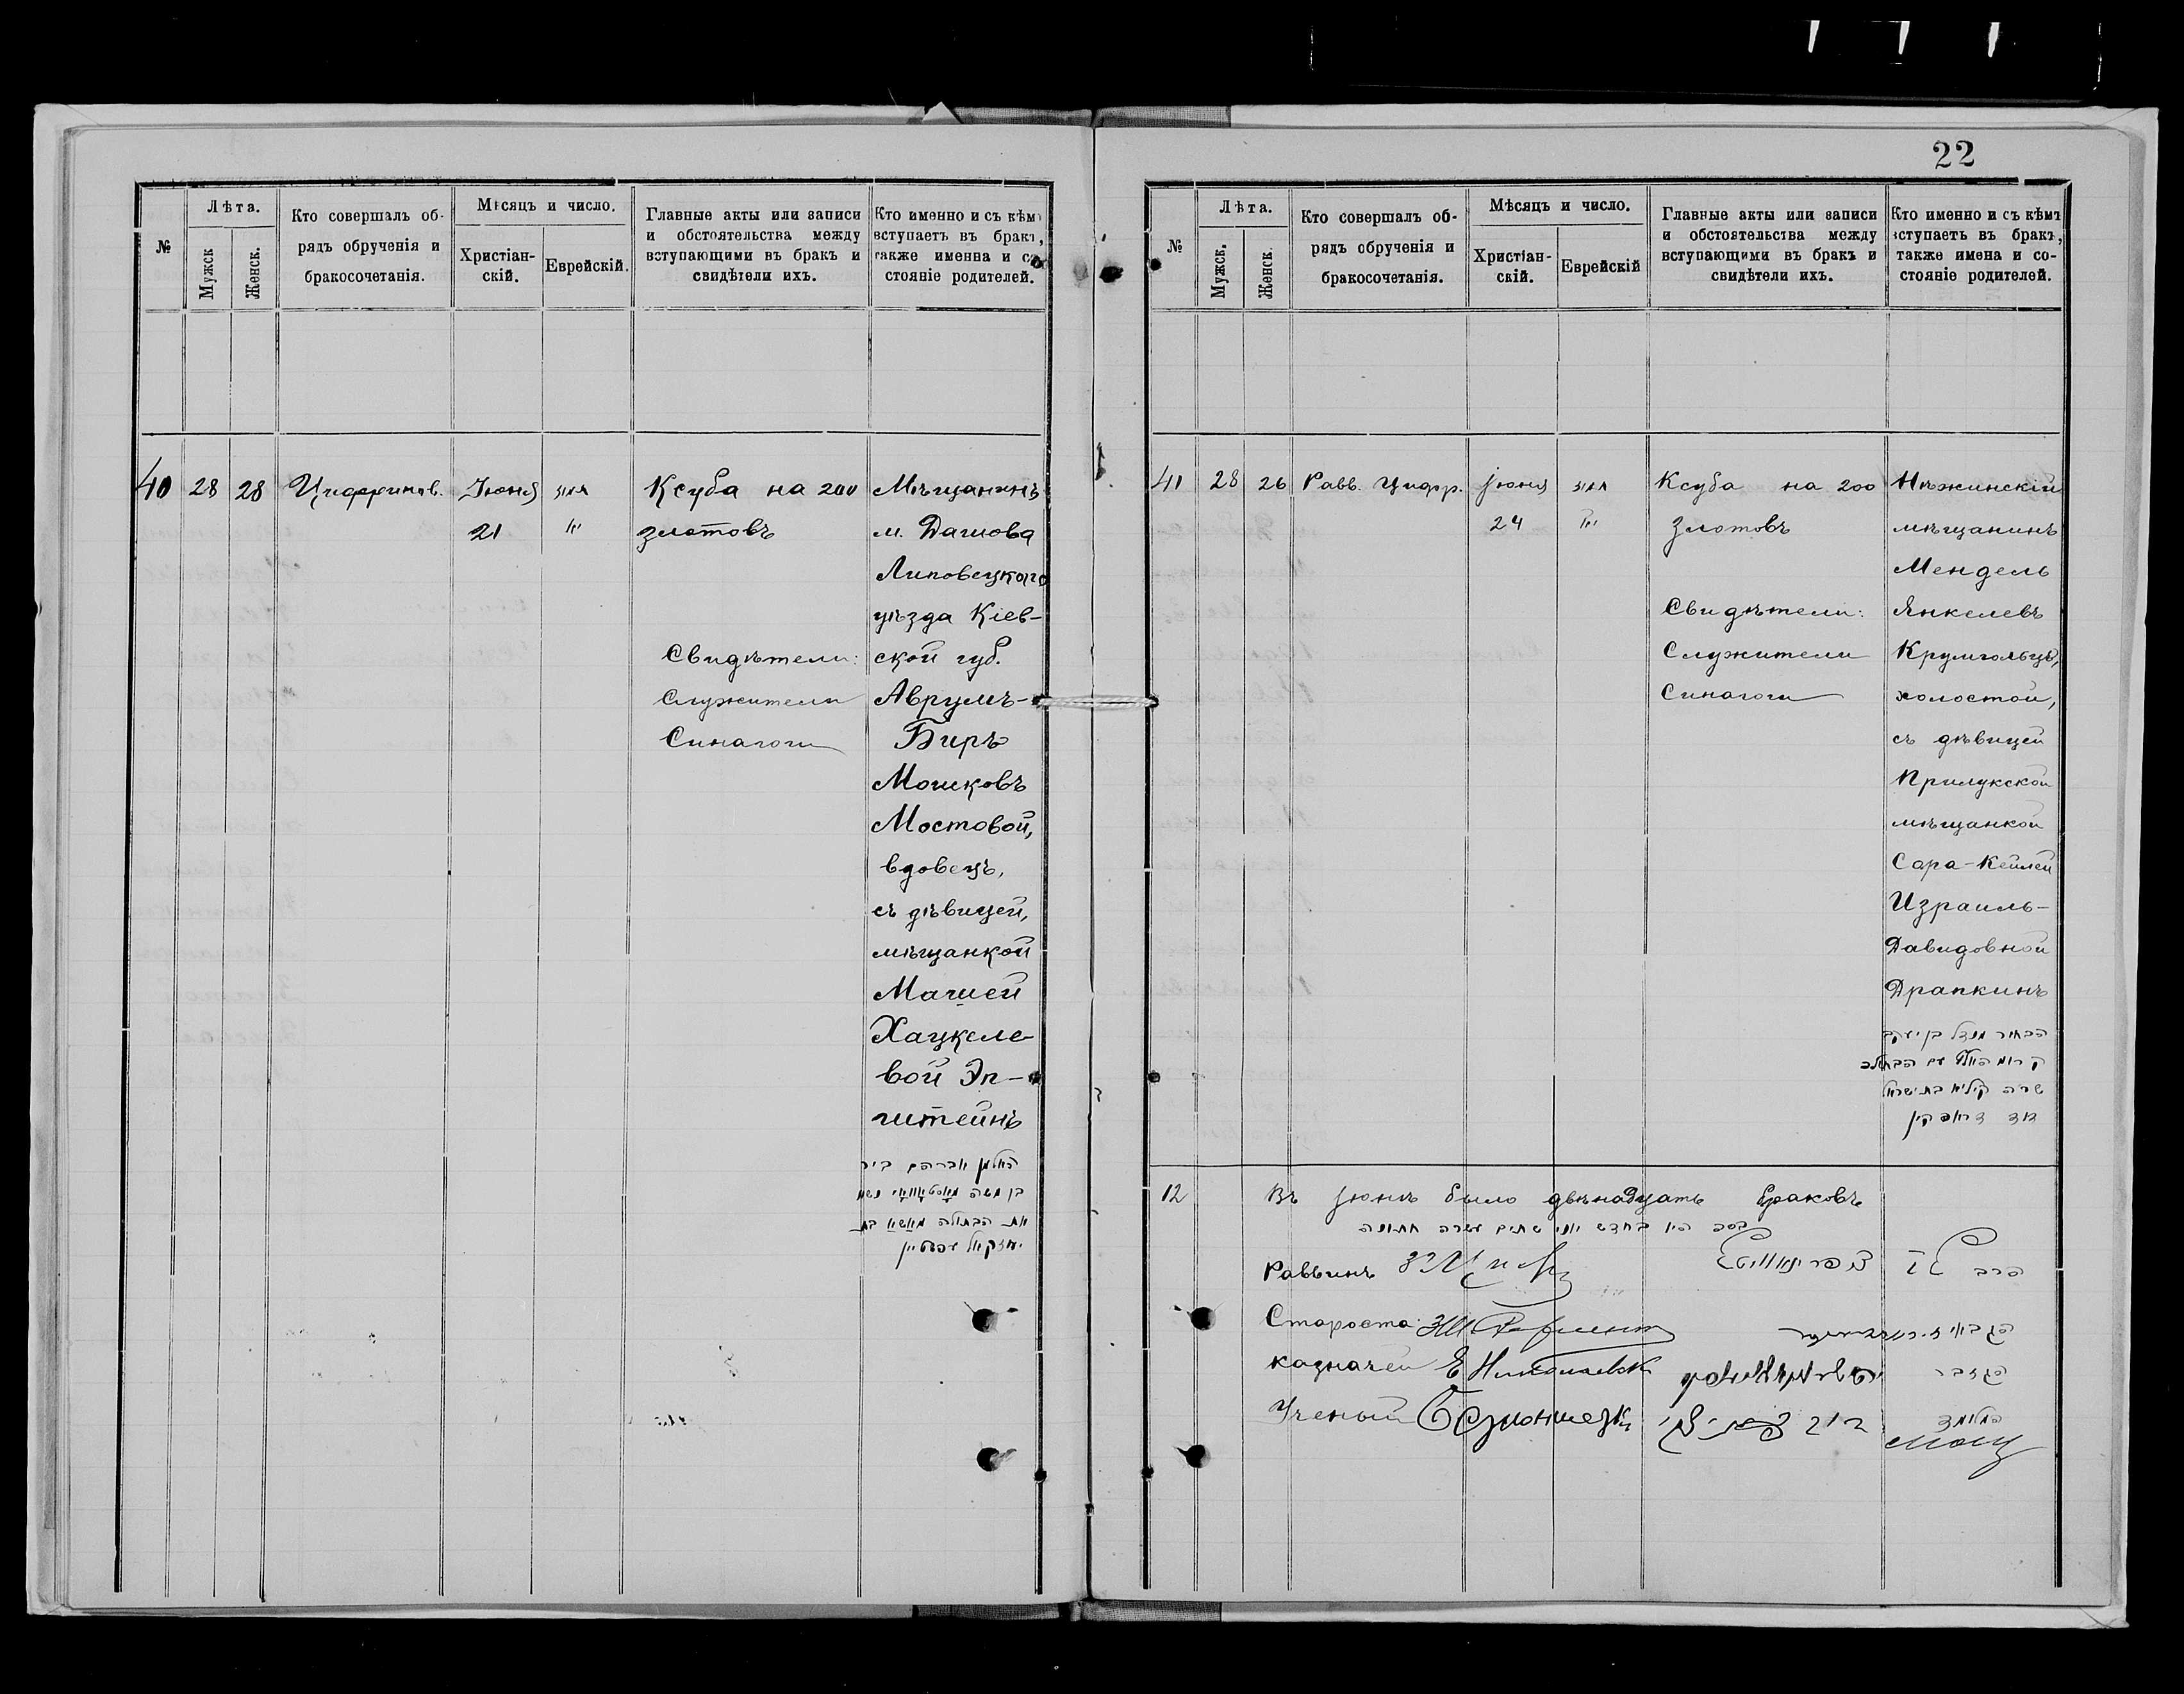 22
№
Лѣта.
Мужск
Женск.
Кто совершалъ об-
рядъ обрученія и
бракосочетанія.
Мѣсяцъ и число.
Христіан-
скій.
Еврейскій.
Главные акты или записи
и обстоятельства между
вступающими въ бракъ и
свидѣтели ихъ.
Кто именно и съ кѣмъ
вступаетъ въ бракъ,
также именна и со-
стояніе родителей.
40 28 28 Циффринов. Іюня
21
Ксуба на 200
злотовъ
Свидѣтели:
Служители
Синагоги
Мѣщанинъ
м. Дашова
Липовецкого
уѣзда Кіев-
ской губ.
Аврумъ-
Биръ
Мошковъ
Мостовой,
вдовецъ,
съ дѣвицей,
мѣщанкой
Машей
Хацкеле-
вой Эп-
штейнъ
האלמן אברהם בער
בן משה מאסטאוואי נשא
את הבתולה מאשא בת
יחזקאל עפשטיין
№
Лѣта.
Мужск.
Женск.
Кто совершалъ об-
рядъ обрученія и
бракосочетанія.
Мѣсяцъ и число.
Христіан-
скій.
Еврейскій
Главные акты или записи
и обстоятельства между
вступающими въ бракъ и
свидѣтели ихъ.
Кто именно и съ кѣмъ
вступаетъ въ бракъ,
также имена и со-
стояніе родителей.
41 28 26 Равв. Цифр. Іюня
24
Ксуба на 200
злотовъ
Свидѣтели:
Служители
Синагоги
Нѣжинскій
мѣщанинъ
Мендель
Янкелевъ
Крумгольцъ,
холостой,
съ дѣвицей
Прилукской
мѣщанкой
Сара-Кейлей
Израиль-
Давидовной
Драпкинъ
הבחור מנדל בן יעקב
עם הבתולה
שרה קיילא בת ישראל
דוד דראפקין
12 Въ Іюнѣ было двѣнадцать браковъ
בחדש יוני שתים עשרה חתונה
Раввинъ
הרב
Староста
הגבאי
Казначей Е Николаевск
הגזבר
Ученый
המלומד